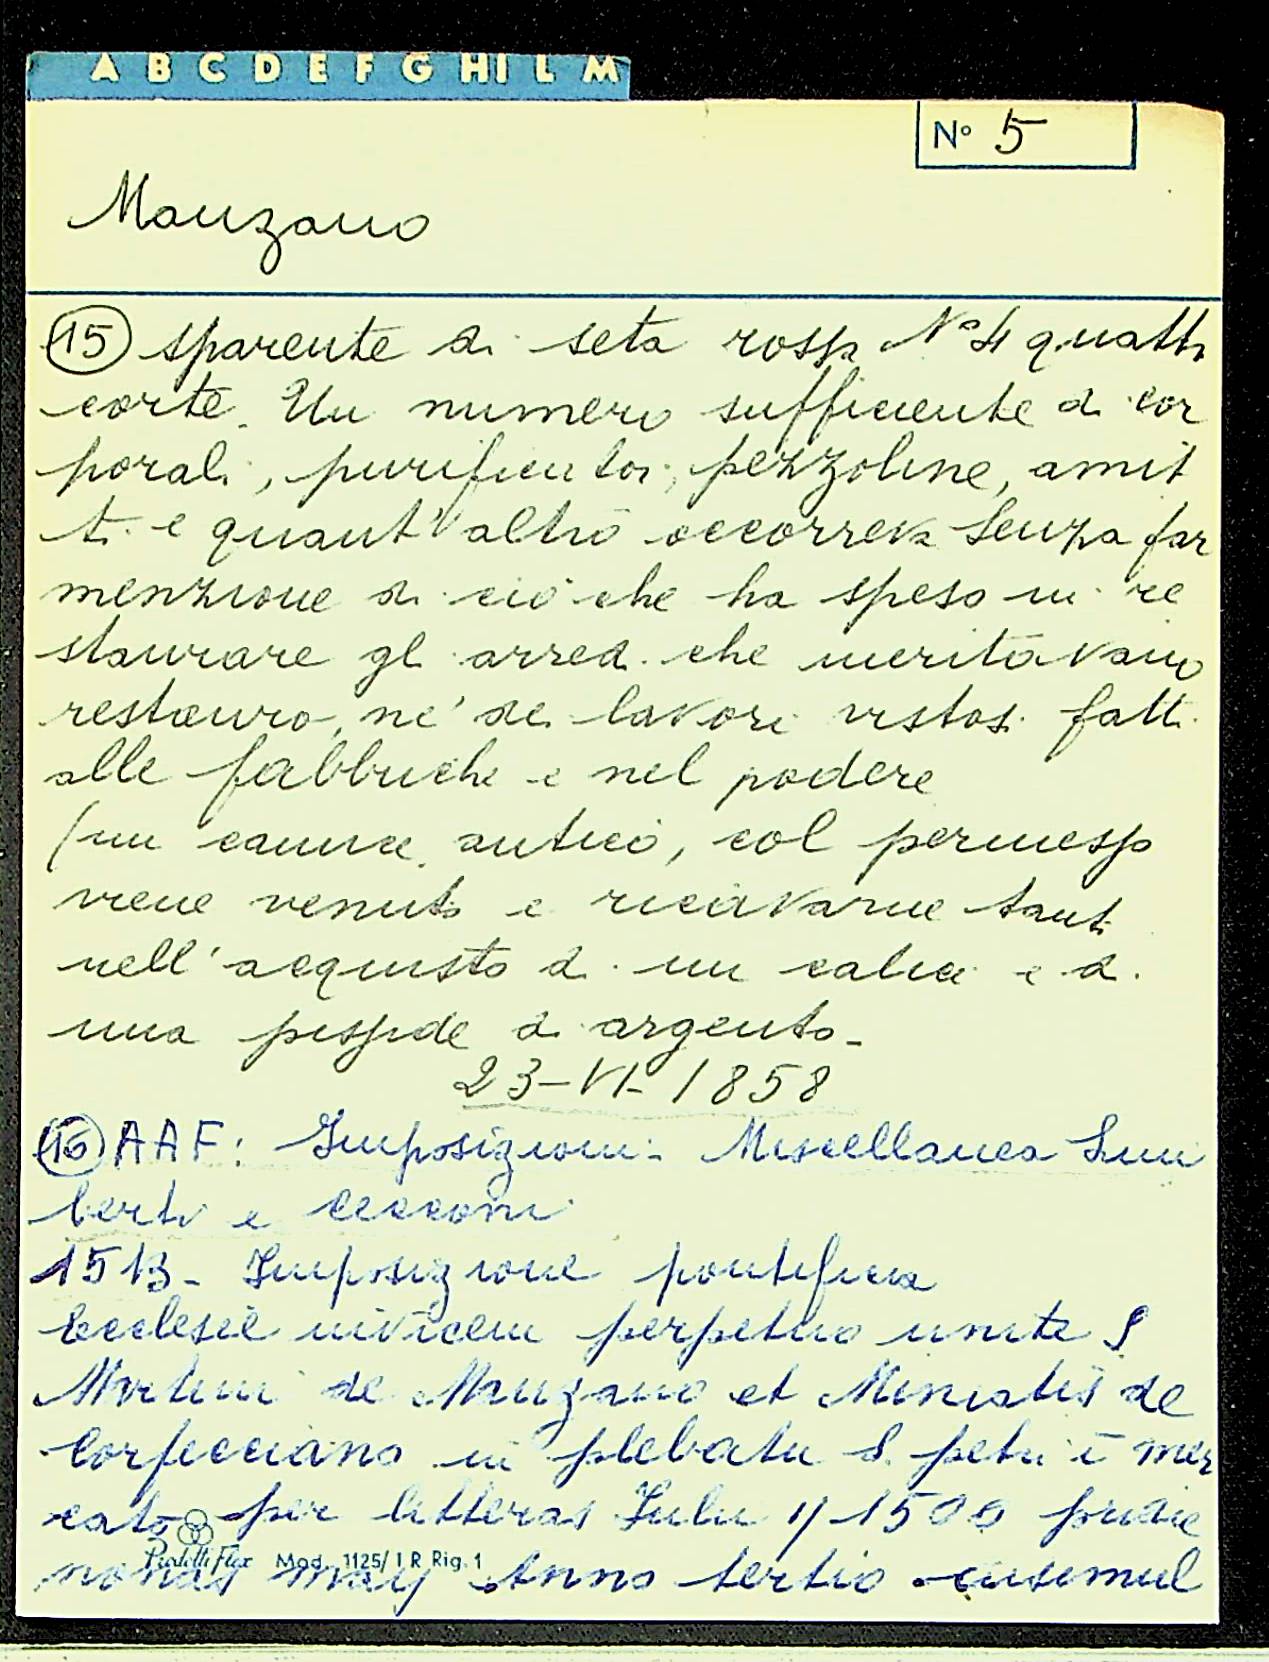 A B C D E F G HI L M
N° 5
Manzano
15 sparente di seta rossa N° 4 quatt
corte. Un numero sufficiente di cor
porali, purificatoi, pezzoline, amit
ti e quant'altro occorreva senza far
menzione di ciò che ha speso in re
staurare gli arredi che meritavano
restauro, nè dei lavori vistosi fatti
alle fabbriche e nel podere
(un camice antico, col permesso
viene venuto e ricavarne tanti
nell'acquisto di un calice e di
una pisside di argento_
23-VI-1858
16 AAF: Imposizioni: Miscellanea Lim
berti e Cecconi
1513- Imposizione pontificia
Ecclesie invicem perpetuo unite S
Martini de Manzano et Miniatis de
Corpicciano in plebatu S. petri i mer
cato per litteras Iulii 1506 pridie
nonas may Anno tertio
Mod. 1125/1 R Rig. 1